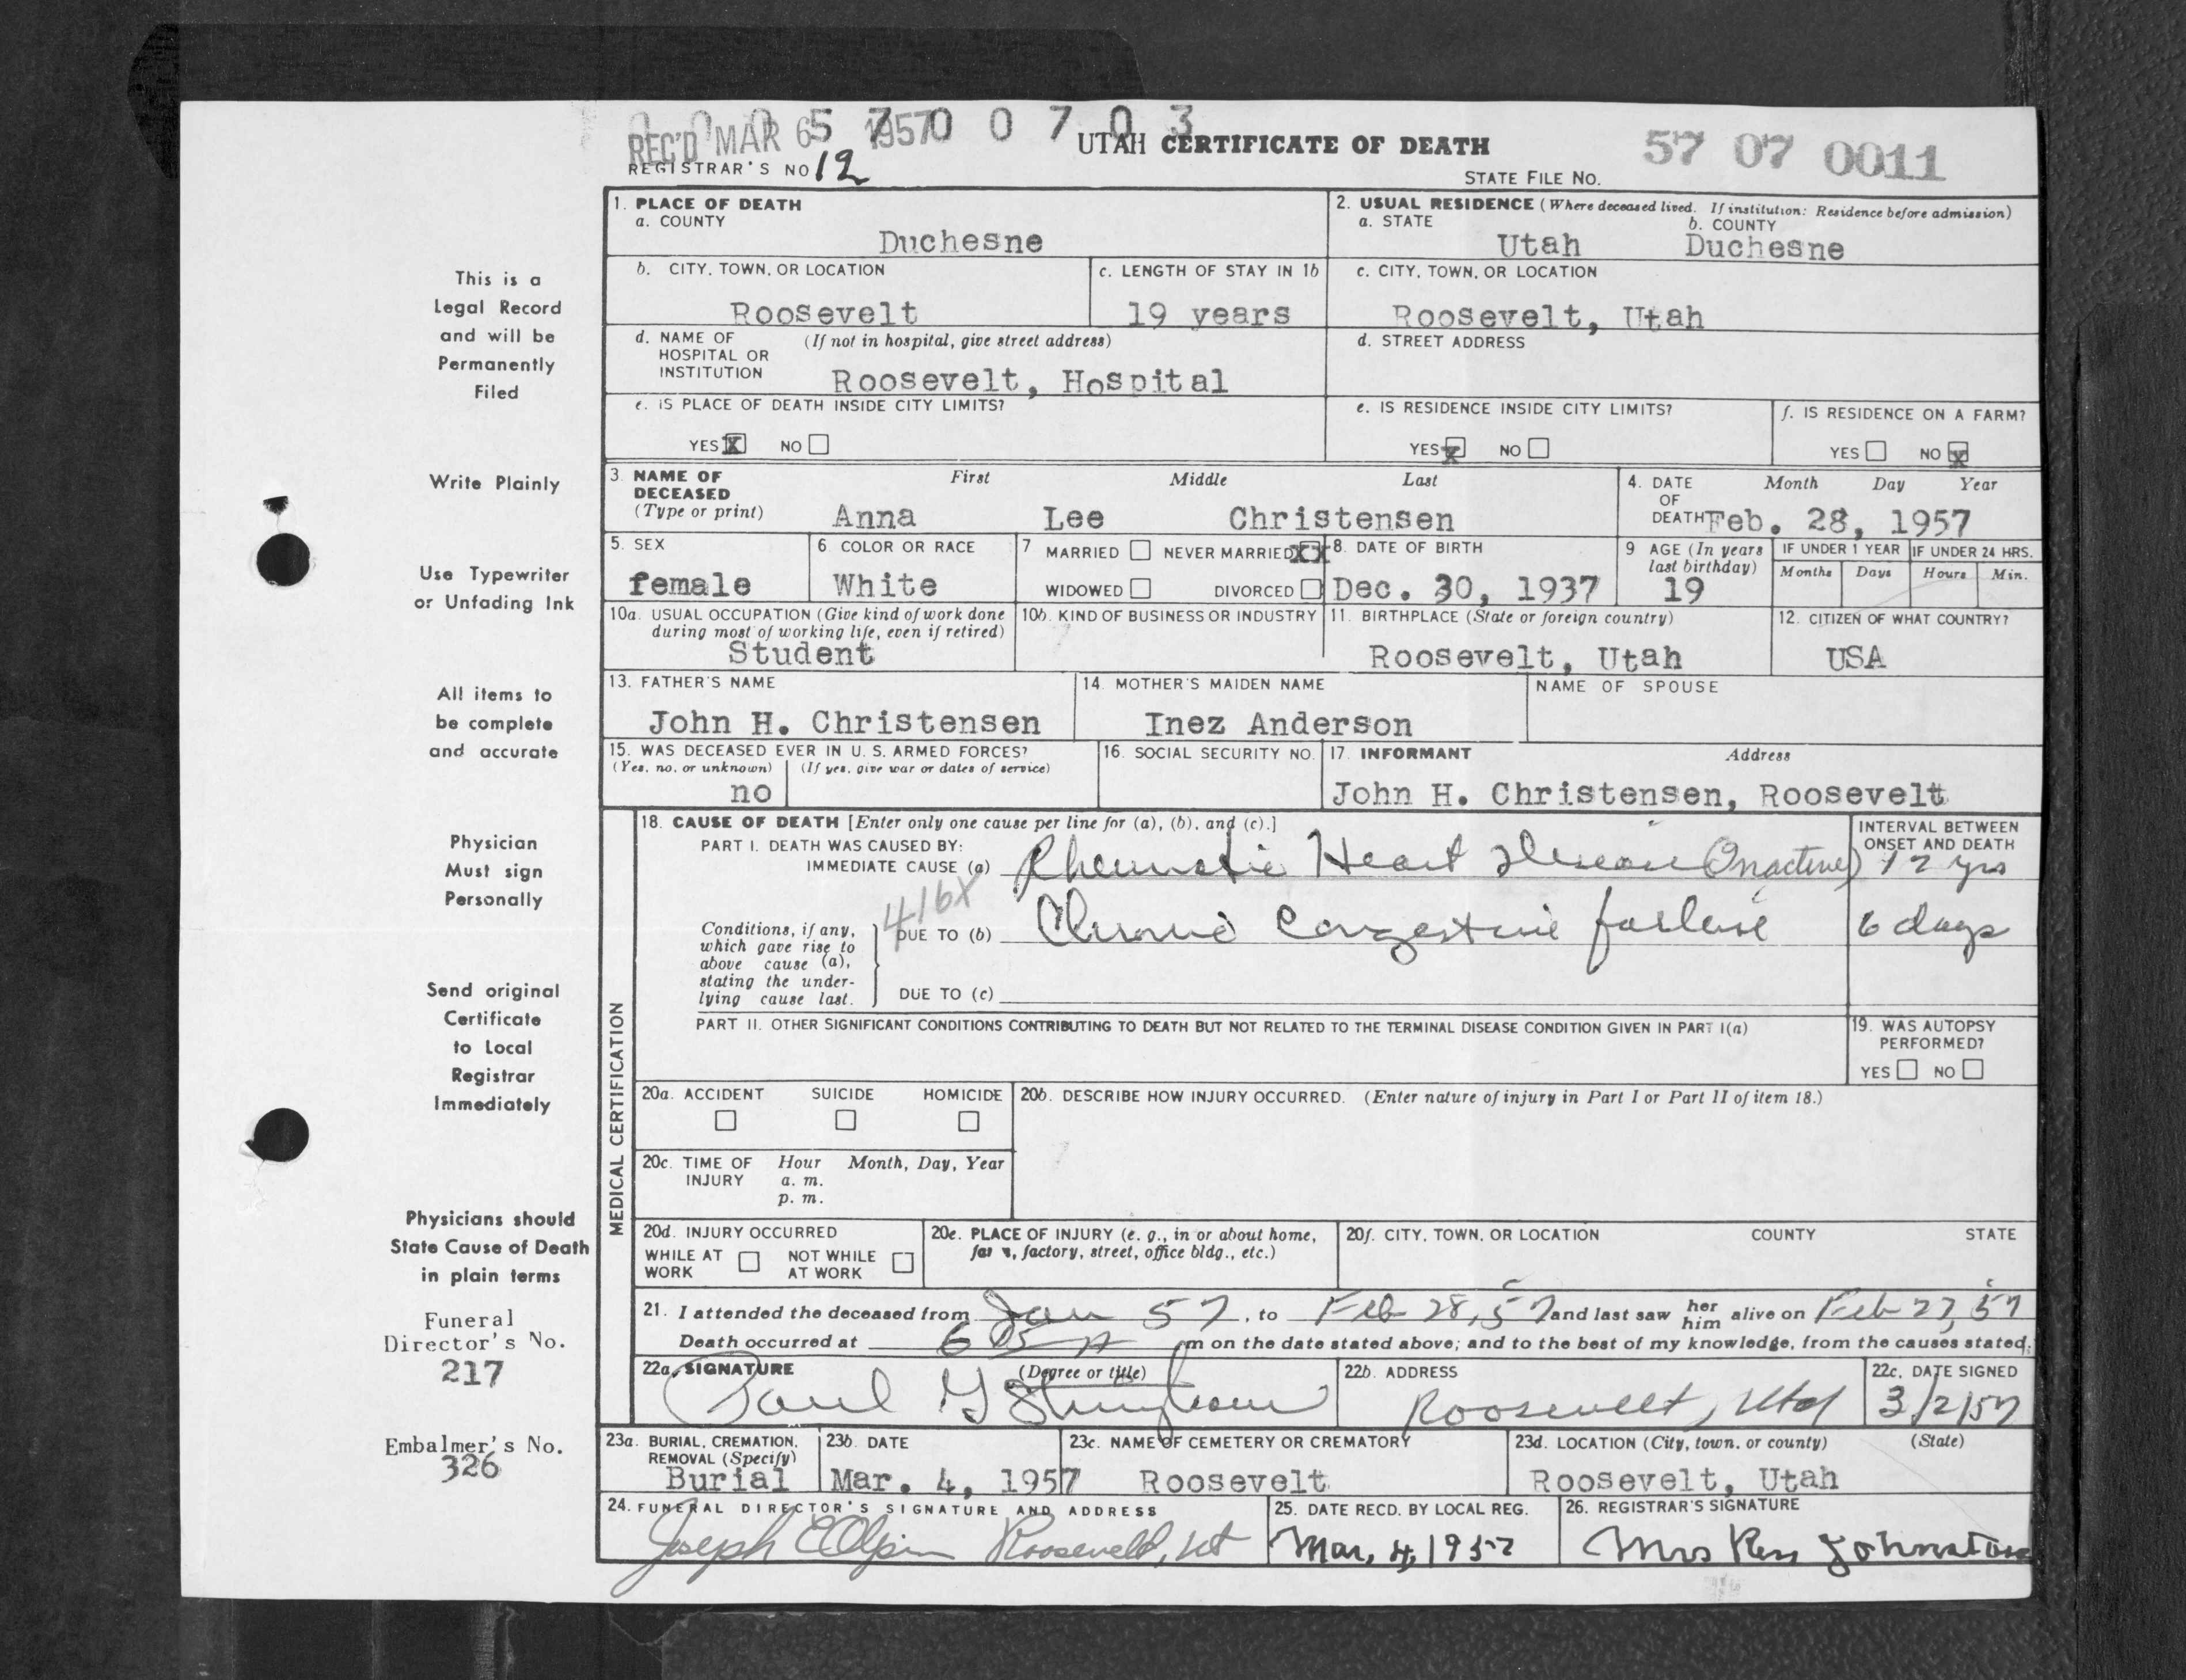 REC'D MAR 6 1957
5 7 0 0 7 0 3
UTAH CERTIFICATE OF DEATH
57 07 0011
REGISTRAR'S NO 12
STATE FILE NO.
This is a
Legal Record
and will be
Permanently
Filed
Write Plainly
Use Typewriter
or Unfading Ink
All items to
be complete
and accurate
Physician
Must sign
Personally
Send original
Certificate
to Local
Registrar
Immediately
Physicians should
State Cause of Death
in plain terms
Funeral
Director's No.
217
Embalmer's No.
326
1. PLACE OF DEATH
a. COUNTY
Duchesne
2. USUAL RESIDENCE (Where deceased lived. If institution: Residence before admission)
a. STATE b. COUNTY
Utah Duchesne
b. CITY, TOWN, OR LOCATION
Roosevelt
c. LENGTH OF STAY IN 1b
19 years
c. CITY, TOWN, OR LOCATION
Roosevelt, Utah
d. NAME OF (If not in hospital, give street address)
HOSPITAL OR
INSTITUTION
Roosevelt, Hospital
d. STREET ADDRESS
e. IS PLACE OF DEATH INSIDE CITY LIMITS?
YES X NO
e. IS RESIDENCE INSIDE CITY LIMITS?
YES X NO
f. IS RESIDENCE ON A FARM?
YES NO X
3. NAME OF First Middle Last
DECEASED
(Type or print) Anna Lee Christensen
4. DATE Month Day Year
OF
DEATH Feb. 28, 1957
5. SEX
female
6. COLOR OR RACE
White
7 MARRIED NEVER MARRIED XX
WIDOWED DIVORCED
8. DATE OF BIRTH
Dec. 30, 1937
9 AGE (In years
last birthday)
19
IF UNDER 1 YEAR IF UNDER 24 HRS.
Months Days Hours Min.
10a. USUAL OCCUPATION (Give kind of work done
during most of working life, even if retired)
Student
10b. KIND OF BUSINESS OR INDUSTRY
11. BIRTHPLACE (State or foreign country)
Roosevelt, Utah
12. CITIZEN OF WHAT COUNTRY?
USA
13. FATHER'S NAME
John H. Christensen
14. MOTHER'S MAIDEN NAME
Inez Anderson
NAME OF SPOUSE
15. WAS DECEASED EVER IN U. S. ARMED FORCES?
(Yes, no, or unknown) (If yes, give war or dates of service)
no
16. SOCIAL SECURITY NO.
17. INFORMANT Address
John H. Christensen, Roosevelt
MEDICAL CERTIFICATION
18. CAUSE OF DEATH [Enter only one cause per line for (a), (b), and (c).]
PART I. DEATH WAS CAUSED BY:
IMMEDIATE CAUSE (a) Rheumatic Heart Disease (Inactive)
INTERVAL BETWEEN
ONSET AND DEATH
12 yrs
416X
Conditions, if any,
which gave rise to
above cause (a),
stating the under-
lying cause last.
DUE TO (b) Chronic Congestive failure
6 days
DUE TO (c)
PART II. OTHER SIGNIFICANT CONDITIONS CONTRIBUTING TO DEATH BUT NOT RELATED TO THE TERMINAL DISEASE CONDITION GIVEN IN PART I(a)
19. WAS AUTOPSY
PERFORMED?
YES NO
20a. ACCIDENT SUICIDE HOMICIDE
20b. DESCRIBE HOW INJURY OCCURRED. (Enter nature of injury in Part I or Part II of item 18.)
20c. TIME OF Hour Month, Day, Year
INJURY a. m.
p. m.
20d. INJURY OCCURRED
WHILE AT NOT WHILE
WORK AT WORK
20e. PLACE OF INJURY (e. g., in or about home,
farm, factory, street, office bldg., etc.)
20f. CITY, TOWN, OR LOCATION COUNTY STATE
21. I attended the deceased from Jan 57, to Feb 28, 57 and last saw her him alive on Feb 27, 57
Death occurred at 6 05 A m on the date stated above; and to the best of my knowledge, from the causes stated.
22a. SIGNATURE (Degree or title)
Paul G Stringham
22b. ADDRESS
Roosevelt, Utah
22c. DATE SIGNED
3/2/57
23a. BURIAL, CREMATION,
REMOVAL (Specify)
Burial
23b. DATE
Mar. 4, 1957
23c. NAME OF CEMETERY OR CREMATORY
Roosevelt
23d. LOCATION (City, town, or county) (State)
Roosevelt, Utah
24. FUNERAL DIRECTOR'S SIGNATURE AND ADDRESS
Joseph E Olpin Roosevelt, Ut
25. DATE RECD. BY LOCAL REG.
Mar. 4, 1957
26. REGISTRAR'S SIGNATURE
Mrs Johnston